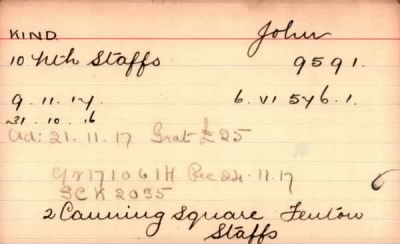 KIND John
10 Nth Staffs 9591.
9.11.14. 6.VI 546.1.
31.10.16
Ad: 21.11.17 Grat £25
Rec 24.11.17
SCK 2035 6
2 Canning Square Fenton
Staffs